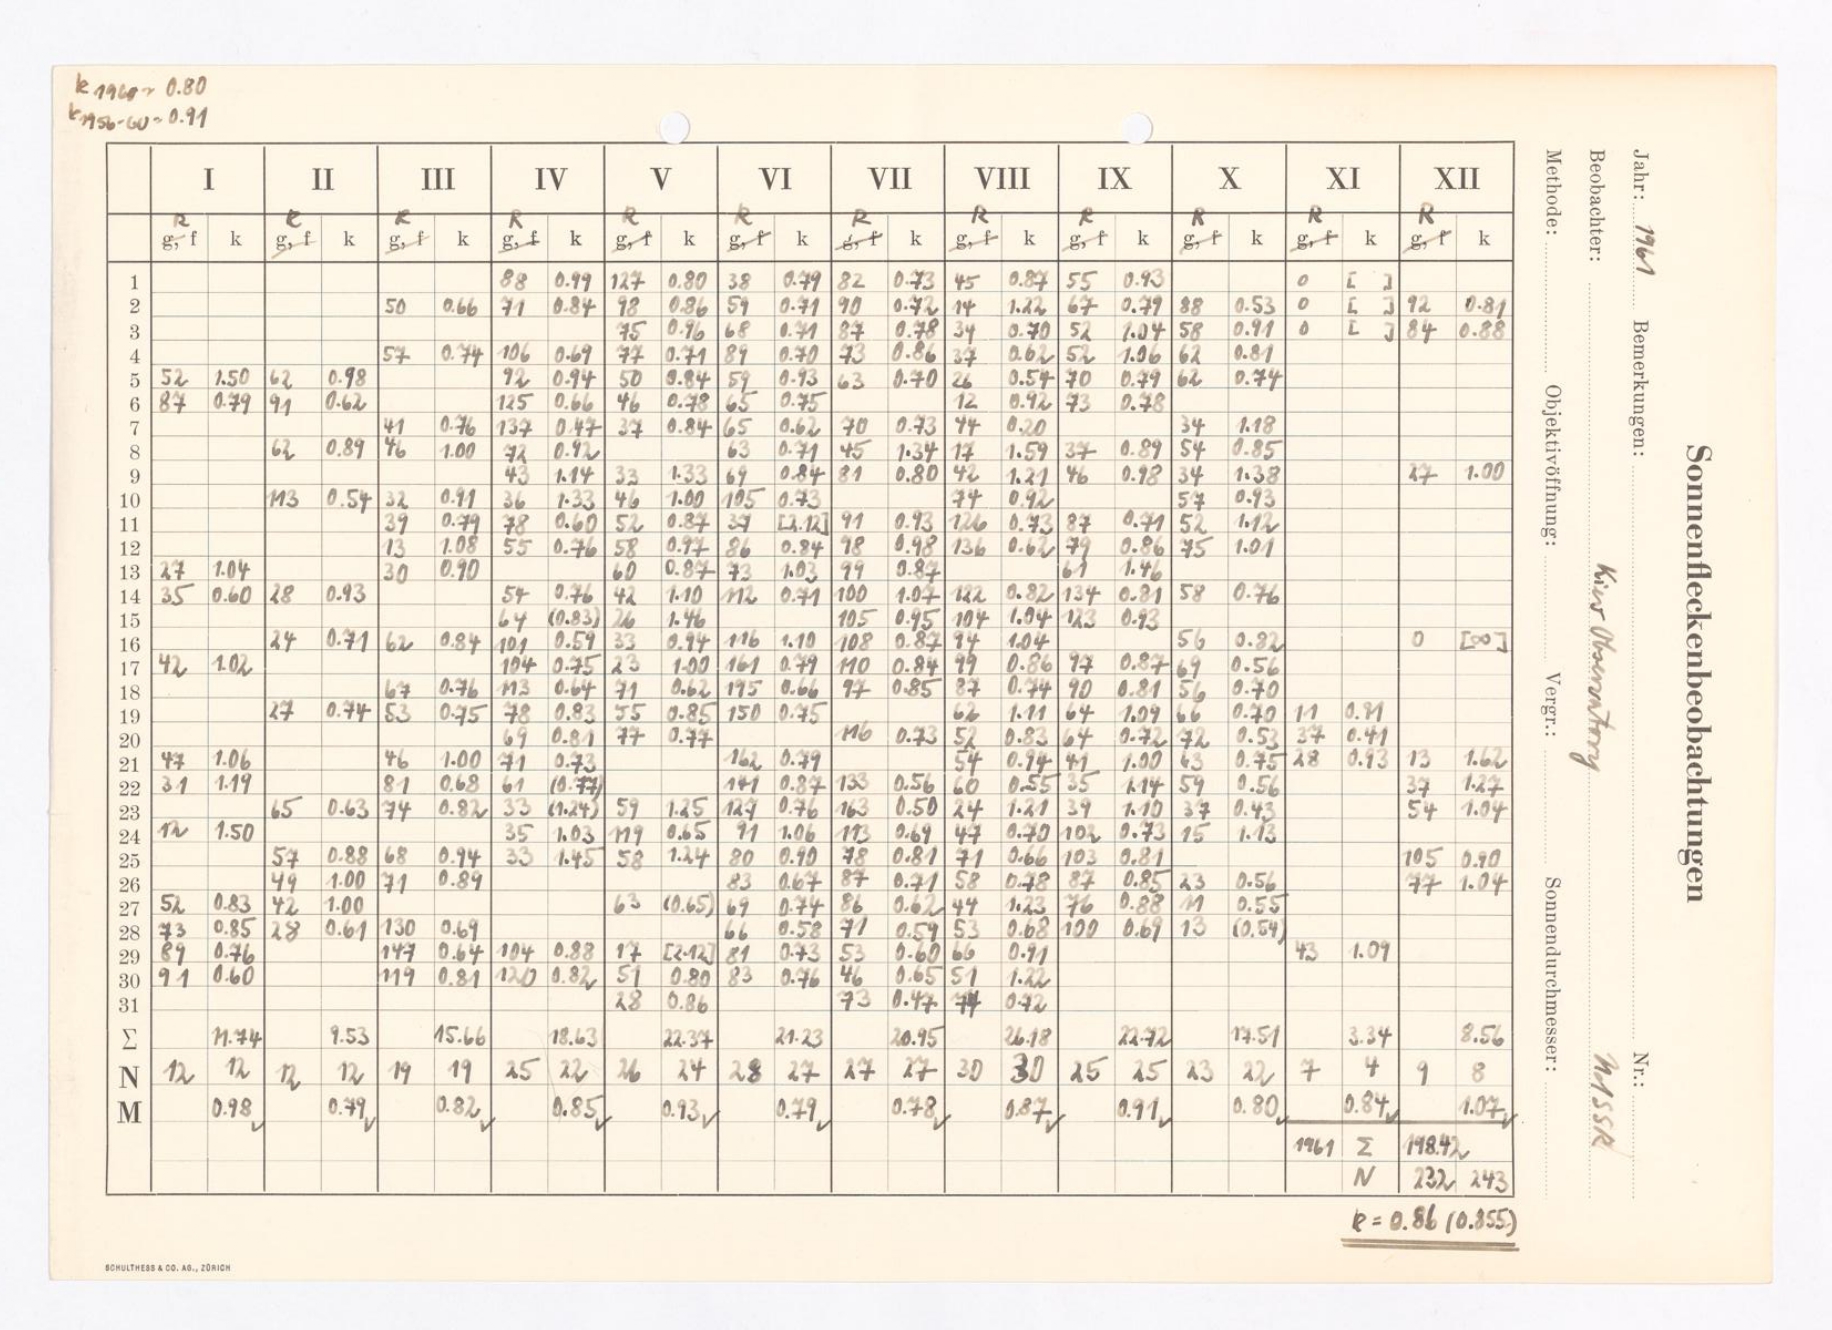 k 1960 = 0.80
k 1956-60 = 0.91
I II III IV V VI VII VIII IX X XI XII
R R R R R R R R R R R R
g, f k g, f k g, f k g, f k g, f k g, f k g, f k g, f k g, f k g, f k g, f k g, f k
1 88 0.99 127 0.80 38 0.79 82 0.73 45 0.87 55 0.93 0 [ ]
2 50 0.66 71 0.84 98 0.86 59 0.71 90 0.72 14 1.22 67 0.79 88 0.53 0 [ ] 92 0.81
3 75 0.96 68 0.71 87 0.78 34 0.70 52 1.04 58 0.91 0 [ ] 84 0.88
4 57 0.74 106 0.69 77 0.71 89 0.70 73 0.86 37 0.62 52 1.06 62 0.81
5 52 1.50 62 0.98 92 0.94 50 0.84 59 0.93 63 0.70 26 0.54 70 0.79 62 0.74
6 87 0.79 91 0.62 125 0.66 46 0.78 65 0.75 12 0.92 73 0.78
7 41 0.76 137 0.47 37 0.84 65 0.62 70 0.73 44 0.20 34 1.18
8 62 0.89 46 1.00 72 0.92 63 0.71 45 1.34 17 1.59 37 0.89 54 0.85
9 43 1.14 33 1.33 69 0.84 81 0.80 42 1.21 46 0.98 34 1.38 27 1.00
10 113 0.54 32 0.91 36 1.33 46 1.00 105 0.73 74 0.92 57 0.93
11 39 0.79 78 0.60 52 0.87 37 [2.12] 91 0.93 126 0.73 87 0.71 52 1.12
12 13 1.08 55 0.76 58 0.97 86 0.84 98 0.98 136 0.62 79 0.86 75 1.01
13 27 1.04 30 0.90 60 0.87 73 1.03 99 0.87 61 1.46
14 35 0.60 28 0.93 54 0.76 42 1.10 112 0.71 100 1.07 122 0.82 134 0.81 58 0.76
15 64 (0.83) 26 1.46 105 0.95 104 1.04 123 0.93
16 24 0.71 62 0.84 101 0.59 33 0.94 116 1.10 108 0.87 94 1.04 56 0.82 0 [∞]
17 42 1.02 104 0.75 23 1.00 161 0.79 110 0.84 99 0.86 97 0.87 69 0.56
18 67 0.76 113 0.64 71 0.62 195 0.66 97 0.85 87 0.74 90 0.81 56 0.70
19 27 0.74 53 0.75 78 0.83 55 0.85 150 0.75 62 1.11 64 1.09 66 0.70 11 0.91
20 69 0.81 77 0.77 116 0.73 52 0.83 64 0.72 72 0.53 37 0.41
21 47 1.06 46 1.00 71 0.73 162 0.79 54 0.94 41 1.00 63 0.75 28 0.93 13 1.62
22 31 1.19 81 0.68 61 (0.77) 141 0.87 133 0.56 60 0.55 35 1.14 59 0.56 37 1.27
23 65 0.63 74 0.82 33 (1.24) 59 1.25 127 0.76 163 0.50 24 1.21 39 1.10 37 0.43 54 1.04
24 12 1.50 35 1.03 119 0.65 91 1.06 113 0.69 47 0.70 102 0.73 15 1.13
25 57 0.88 68 0.94 33 1.45 58 1.24 80 0.90 78 0.81 71 0.66 103 0.81 105 0.90
26 49 1.00 71 0.89 83 0.67 87 0.71 58 0.78 87 0.85 23 0.56 77 1.04
27 52 0.83 42 1.00 63 (0.65) 69 0.74 86 0.62 44 1.23 76 0.88 11 0.55
28 73 0.85 28 0.61 130 0.69 66 0.58 71 0.59 53 0.68 100 0.69 13 (0.59)
29 89 0.76 147 0.64 104 0.88 17 [2.12] 81 0.73 53 0.60 66 0.91 43 1.09
30 91 0.60 119 0.81 120 0.82 51 0.80 83 0.76 46 0.65 51 1.22
31 28 0.86 73 0.47 74 0.72
Σ 11.74 9.53 15.66 18.63 22.37 21.23 20.95 26.18 22.72 17.51 3.34 8.56
N 12 12 12 12 19 19 25 22 26 24 28 27 27 27 30 30 25 25 23 22 7 4 9 8
M 0.98 0.79 0.82 0.85 0.93 0.79 0.78 0.87 0.91 0.80 0.84 1.07
1961 Σ 198.42
N 232 243
k = 0.86 (0.855)
SCHULTHESS & CO. AG., ZÜRICH
Sonnenfleckenbeobachtungen
Jahr: 1961 Bemerkungen: Nr.:
Beobachter: Kiew Observatory UdSSR
Methode: Objektivöffnung: Vergr.: Sonnendurchmesser: